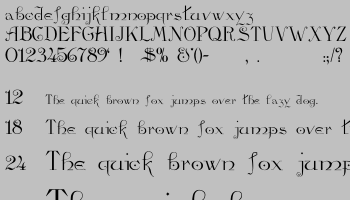 abcdefghijklmnopqrstuvwxyz
ABCDEFGHIJKLMNOPQRSTUVWXYZ
0123456789' ! $% &()- , . :;/?
12 The quick brown fox jumps over the lazy dog.
18 The quick brown fox jumps over t
24 The quick brown fox jump